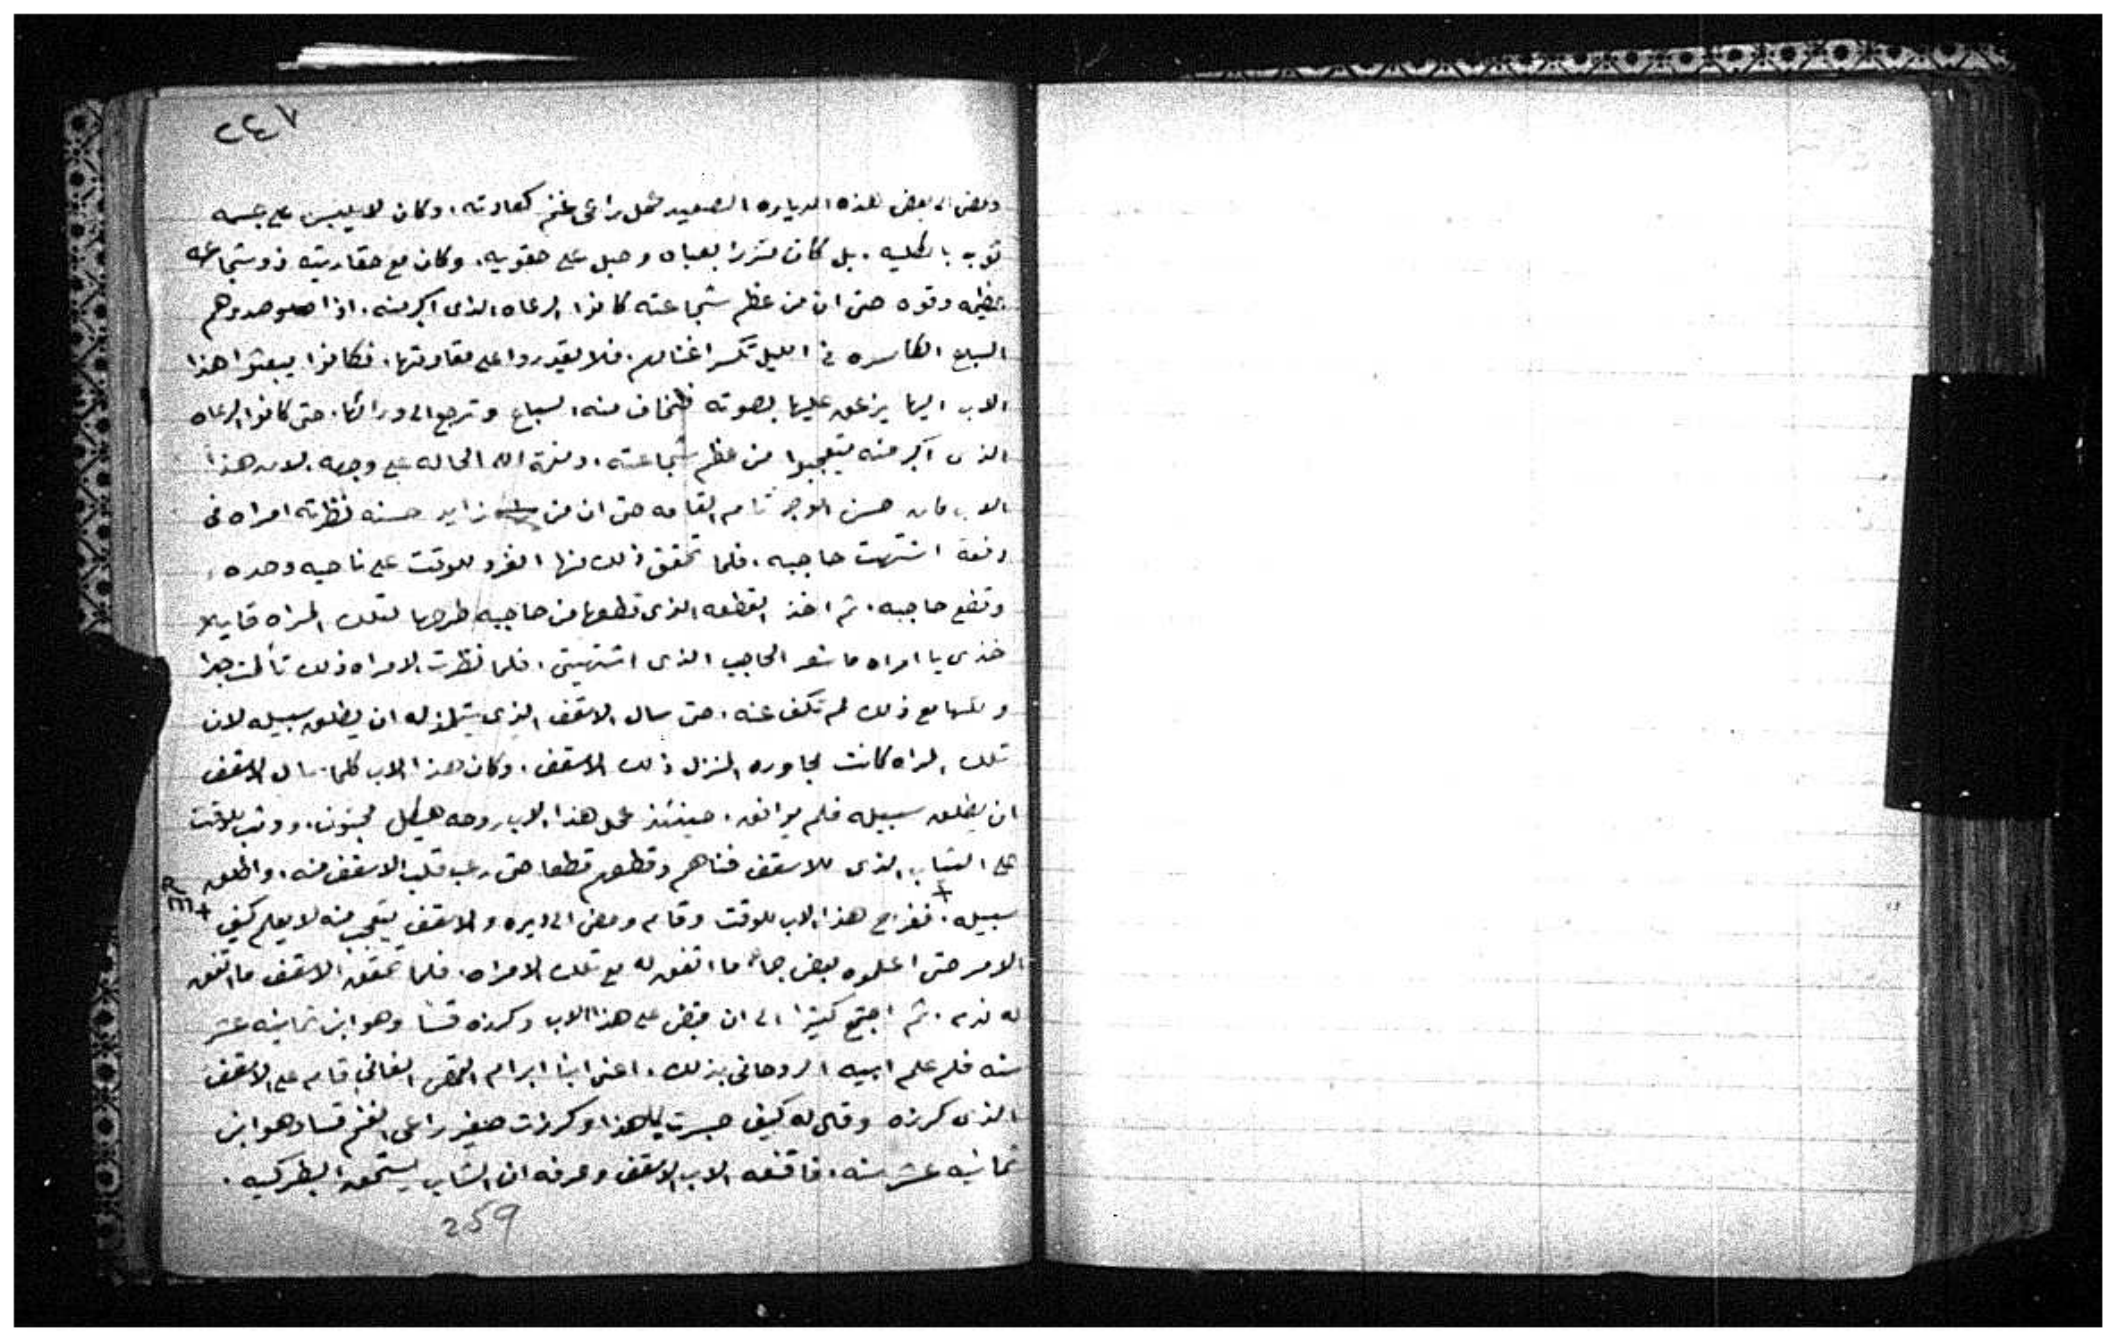 ٢٤٧
ومضى الى بعض هذه الدياره الصعيد عمل راعى غنم كعادته. وكان لا يلبس على جسمه
ثوب بالكليه. بل كان متزرا بعباه وحبل على حقويه. وكان مع حقاريته ذو شجاعه
عظيمه وقوه حتى ان من عظم شجاعته كانوا الرعاه الذى اكبر منه. اذا وهم
السباع الكاسره فى الليل تكسر اغنامهم. فلا يقدروا على مقاومتها. فكانوا يبعثوا هذا
الاب اليها يزعق عليها بصوته فتخاف منه السباع وترجع الى ورائها. حتى كانوا الرعاه
الذى اكبر منه يتعجبوا من عظم شجاعته. ونعمة الله الحاله على وجهه. لان هذا
الاب كان حسن الوجه تام القامه حتى ان من زايد حسنه نظرته امراه فى
دفعة اشتهت حاجبه. فلما تحقق ذلك منها انفرد للوقت على ناحيه وحده.
وقطع حاجبه. ثم اخذ القطعه الذى قطعها من حاجبه طرحها لتلك المراه قايلا
خذى يا امراه ما شعر الحاجب الذى اشتهيتى. فلما نظرت الامراه ذلك تألمت جدا
ولكنها مع ذلك لم تكف عنه. حتى سال الاسقف الذى يتلمذ له ان يطلق سبيله لان
تلك المراه كانت مجاوره لمنزل ذلك الاسقف. وكان هذا الاب كلما سال الاسقف
ان يطلق سبيله فلم يوافق. حينئذ عمل هذا الاب روحه هيكل مجنون. ووثب للوقت
على الثياب الذى للاسقف فناهم وقطعهم قطعا حتى رعب قلب الاسقف منه. واطلق
سبيله. + ففرح هذا الاب للوقت وقام ومضى الى ديره والاسقف يتعجب منه لا يعلم كيف +
الامر حتى اعلموه بعض جماعه ما اتفق له مع تلك الامراه. فلما تحقق الاسقف ما اتفق
له ندم. ثم اجتهد كثيرا الى ان قبض على هذا الاب وكرزه قسا وهو ابن ثمانيه عشر
سنه فلم علم ابيه الروحانى بذلك. اعنى ابنا ابرام القمص الفانى قام على الاسقف
الذى كرزه وقال له كيف جسرت لهذا وكرزت صغير راعى الغنم قسا وهو ابن
ثمانيه عشر سنه. فاقنعه الاب الاسقف وعرفه ان الشاب يستحق البطركيه.
259